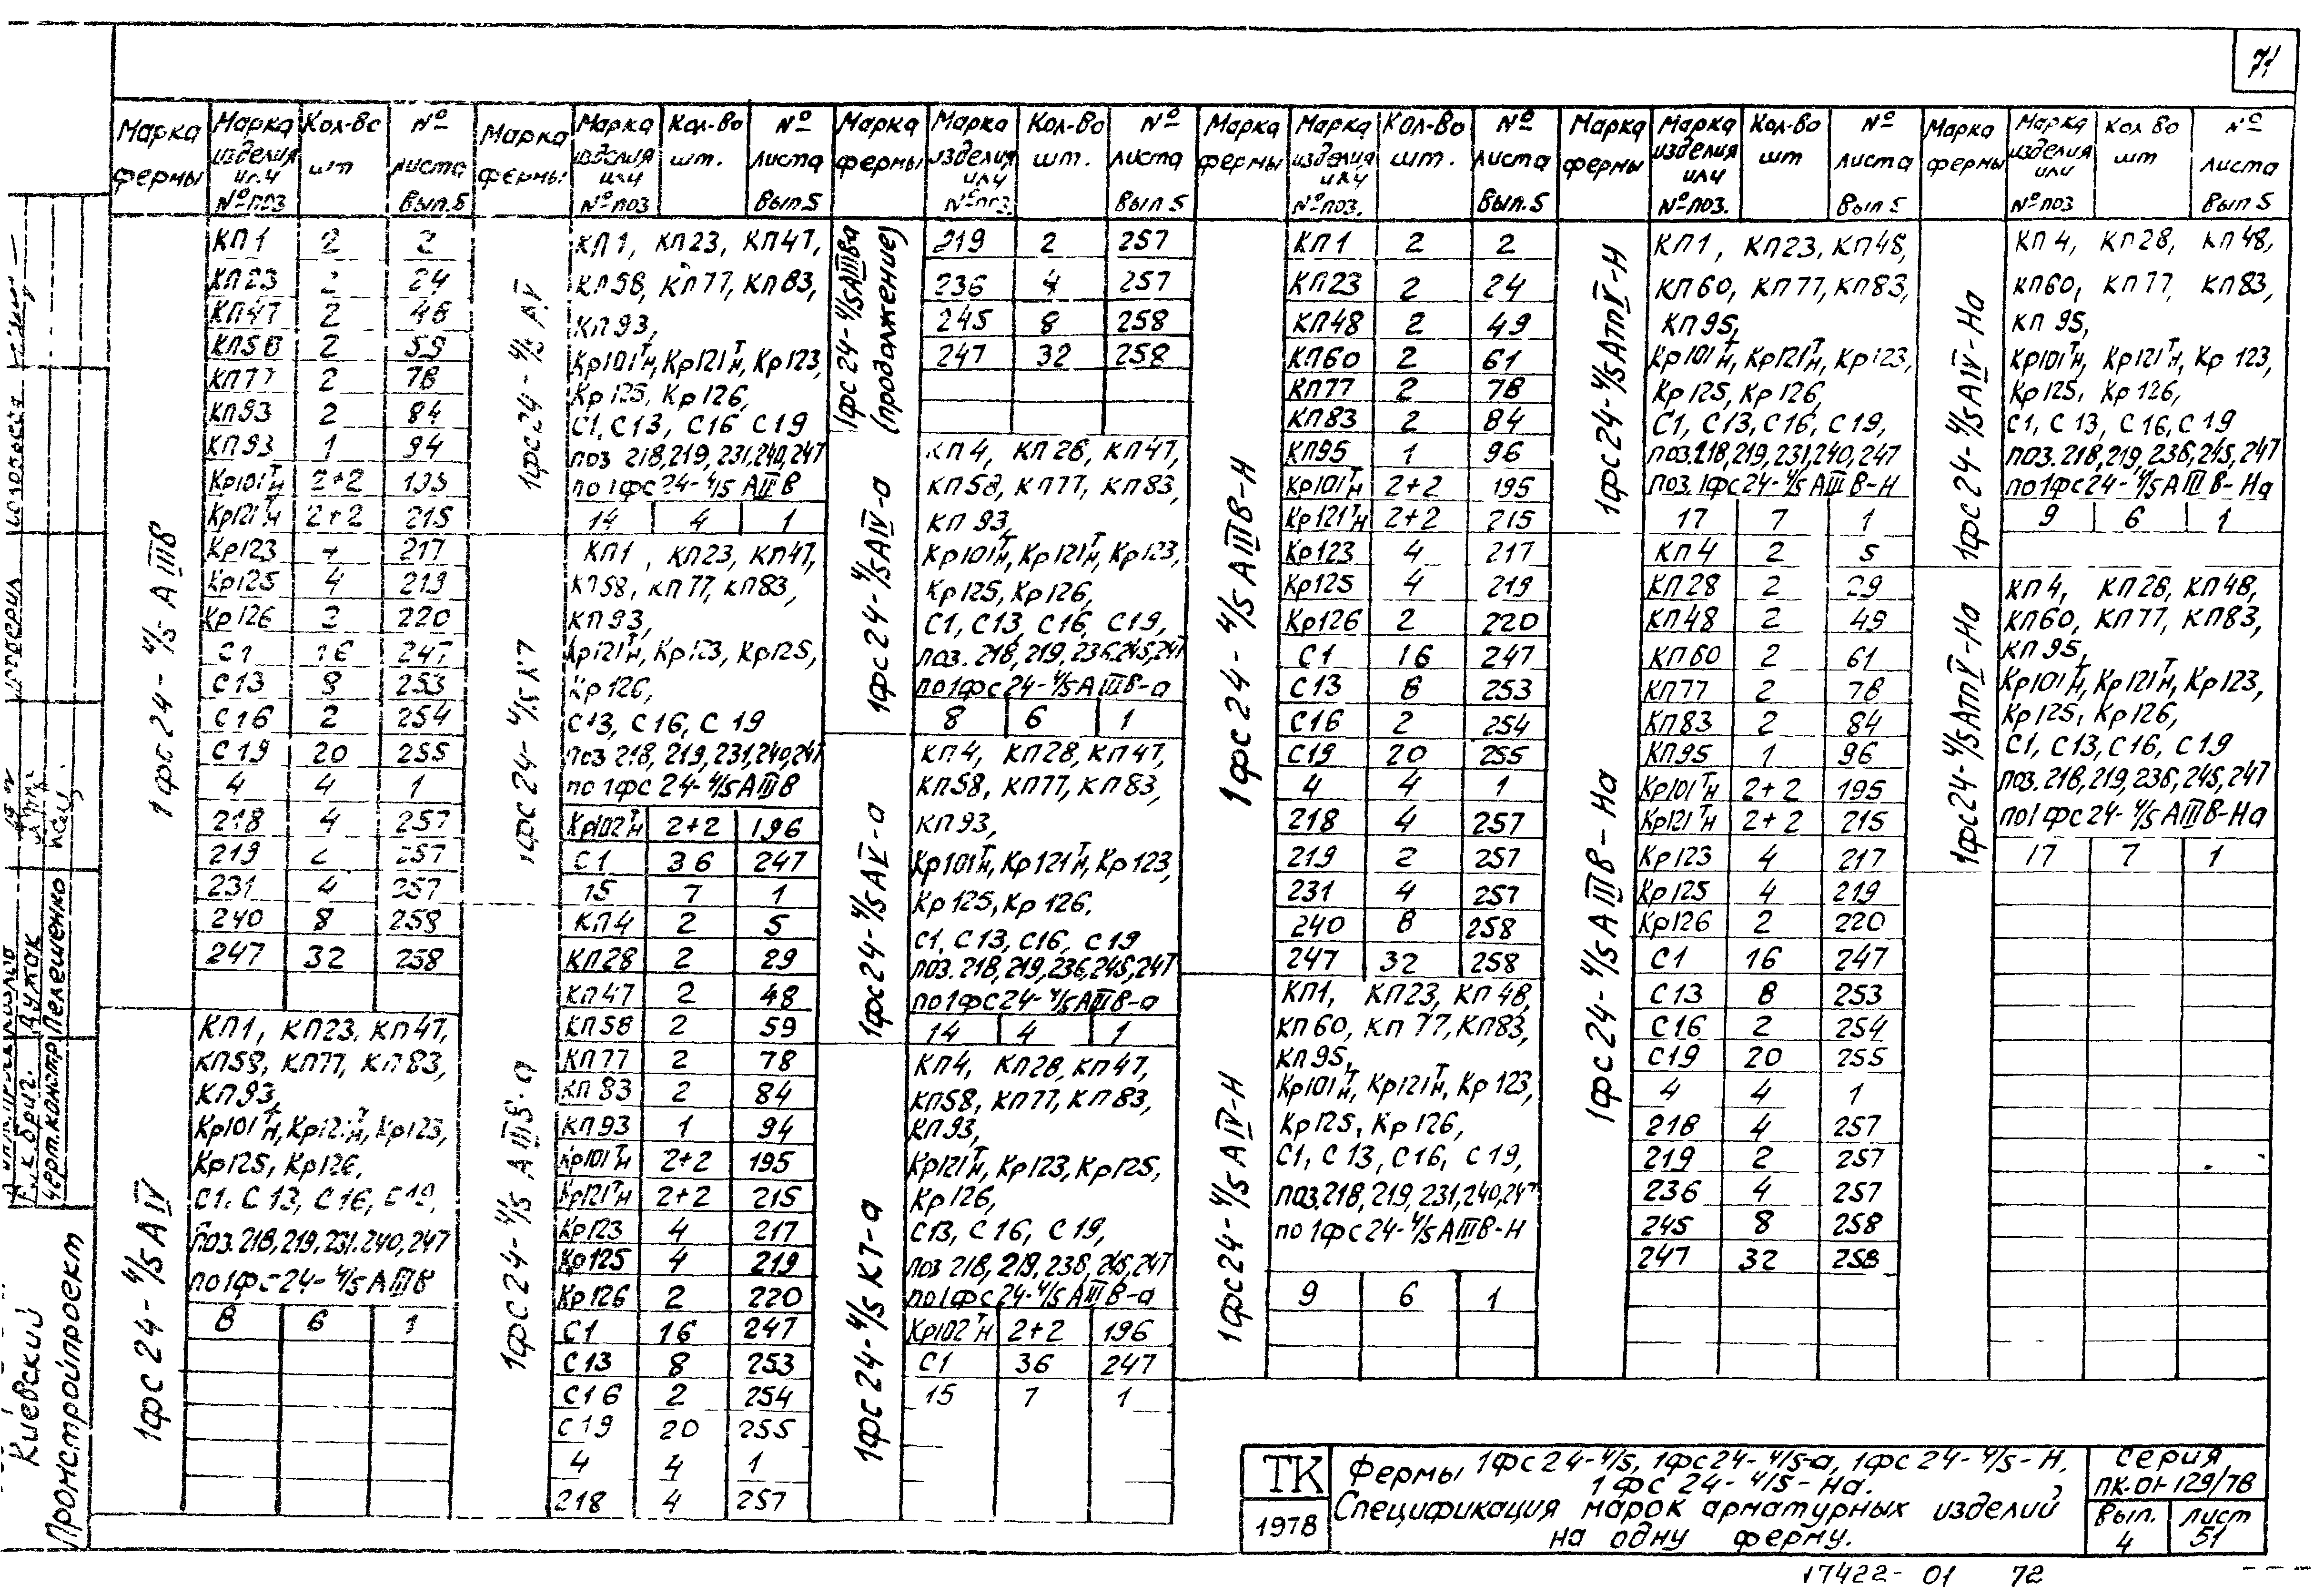 71
Марка фермы | Марка изделия или № поз | Кол-во шт | № листа Вып.5
1фс24-4/5АIIIв
КП1 2 2
КП23 2 24
КП47 2 48
КП58 2 59
КП77 2 78
КП93 2 84
КП93 1 94
Кр101тн 2+2 195
Кр121тн 2+2 215
Кр123 4 217
Кр125 4 219
Кр126 2 220
С1 16 247
С13 8 253
С16 2 254
С19 20 255
4 4 1
218 4 257
219 2 257
231 4 257
240 8 258
247 32 258
1фс24-4/5АIV
КП1, КП23, КП47,
КП58, КП77, КП83,
КП93,
Кр101тн, Кр121тн, Кр123,
Кр125, Кр126,
С1, С13, С16, С19,
поз.218,219,231,240,247
по 1фс-24-4/5АIIIв
8 6 1
Марка фермы | Марка изделия или № поз | Кол-во шт. | № листа Вып.5
1фс24-4/5АV
КП1, КП23, КП47,
КП58, КП77, КП83,
КП93,
Кр101тн, Кр121тн, Кр123,
Кр125, Кр126,
С1, С13, С16 С19
поз 218,219,231,240,247
по 1фс24-4/5АIIIв
14 4 1
1фс24-4/5К7
КП1, КП23, КП47,
КП58, КП77, КП83,
КП93,
Кр121тн, Кр123, Кр125,
Кр126,
С13, С16, С19
поз 218, 219, 231,240,247
по 1фс24-4/5АIIIв
Кр102тн 2+2 196
С1 36 247
15 7 1
1фс24-4/5АIIIв-а
КП4 2 5
КП28 2 29
КП47 2 48
КП58 2 59
КП77 2 78
КП83 2 84
КП93 1 94
Кр101тн 2+2 195
Кр121тн 2+2 215
Кр123 4 217
Кр125 4 219
Кр126 2 220
С1 16 247
С13 8 253
С16 2 254
С19 20 255
4 4 1
218 4 257
Марка фермы | Марка изделия или № поз. | Кол-во шт. | № листа Вып 5
1фс24-4/5АIIIва (продолжение)
219 2 257
236 4 257
245 8 258
247 32 258
1фс24-4/5АIV-а
КП4, КП28, КП47,
КП58, КП77, КП83,
КП93,
Кр101тн, Кр121тн, Кр123,
Кр125, Кр126,
С1, С13, С16, С19,
поз.218,219,236,245,247
по 1фс24-4/5АIIIв-а
8 6 1
1фс24-4/5АV-а
КП4, КП28, КП47,
КП58, КП77, КП83,
КП93,
Кр101тн, Кр121тн, Кр123,
Кр125, Кр126,
С1, С13, С16, С19
поз.218,219,236,245,247
по 1фс24-4/5АIIIв-а
14 4 1
1фс24-4/5К7-а
КП4, КП28, КП47,
КП58, КП77, КП83,
КП93,
Кр121тн, Кр123, Кр125,
Кр126,
С13, С16, С19,
поз 218, 219, 236, 245,247
по 1фс24-4/5АIIIв-а
Кр102тн 2+2 196
С1 36 247
15 7 1
Марка фермы | Марка изделия или № поз. | Кол-во шт. | № листа Вып.5
1фс24-4/5АIIIв-Н
КП1 2 2
КП23 2 24
КП48 2 49
КП60 2 61
КП77 2 78
КП83 2 84
КП95 1 96
Кр101тн 2+2 195
Кр121тн 2+2 215
Кр123 4 217
Кр125 4 219
Кр126 2 220
С1 16 247
С13 8 253
С16 2 254
С19 20 255
4 4 1
218 4 257
219 2 257
231 4 257
240 8 258
247 32 258
1фс24-4/5АIV-Н
КП1, КП23, КП48,
КП60, КП77, КП83,
КП95,
Кр101тн, Кр121тн, Кр123,
Кр125, Кр126,
С1, С13, С16, С19,
поз.218,219,231,240,247
по 1фс24-4/5АIIIв-Н
9 6 1
Марка фермы | Марка изделия или № поз. | Кол-во шт | № листа Вып 5
1фс24-4/5АтV-Н
КП1, КП23, КП48,
КП60, КП77, КП83,
КП95,
Кр101тн, Кр121тн, Кр123,
Кр125, Кр126,
С1, С13, С16, С19,
поз.218,219,231,240,247
поз.1фс24-4/5АIIIв-Н
17 7 1
1фс24-4/5АIIIв-На
КП4 2 5
КП28 2 29
КП48 2 49
КП60 2 61
КП77 2 78
КП83 2 84
КП95 1 96
Кр101тн 2+2 195
Кр121тн 2+2 215
Кр123 4 217
Кр125 4 219
Кр126 2 220
С1 16 247
С13 8 253
С16 2 254
С19 20 255
4 4 1
218 4 257
219 2 257
236 4 257
245 8 258
247 32 258
Марка фермы | Марка изделия или № поз | Кол во шт | № листа Вып 5
1фс24-4/5АIV-На
КП4, КП28, КП48,
КП60, КП77, КП83,
КП95,
Кр101тн, Кр121тн, Кр123,
Кр125, Кр126,
С1, С13, С16, С19
поз.218,219,236,245,247
по 1фс24-4/5АIIIв-На
9 6 1
1фс24-4/5АтV-На
КП4, КП28, КП48,
КП60, КП77, КП83,
КП95,
Кр101тн, Кр121тн, Кр123,
Кр125, Кр126,
С1, С13, С16, С19
поз.218,219,236,245,247
по 1фс24-4/5АIIIв-На
17 7 1
ТК
1978
Фермы 1фс24-4/5, 1фс24-4/5-а, 1фс24-4/5-Н,
1фс24-4/5-На.
Спецификация марок арматурных изделий
на одну ферму.
серия
ПК-01-129/78
Вып. 4
лист 51
17422-01 72
Киевский
Промстройпроект
Черт.констр Пелешенко